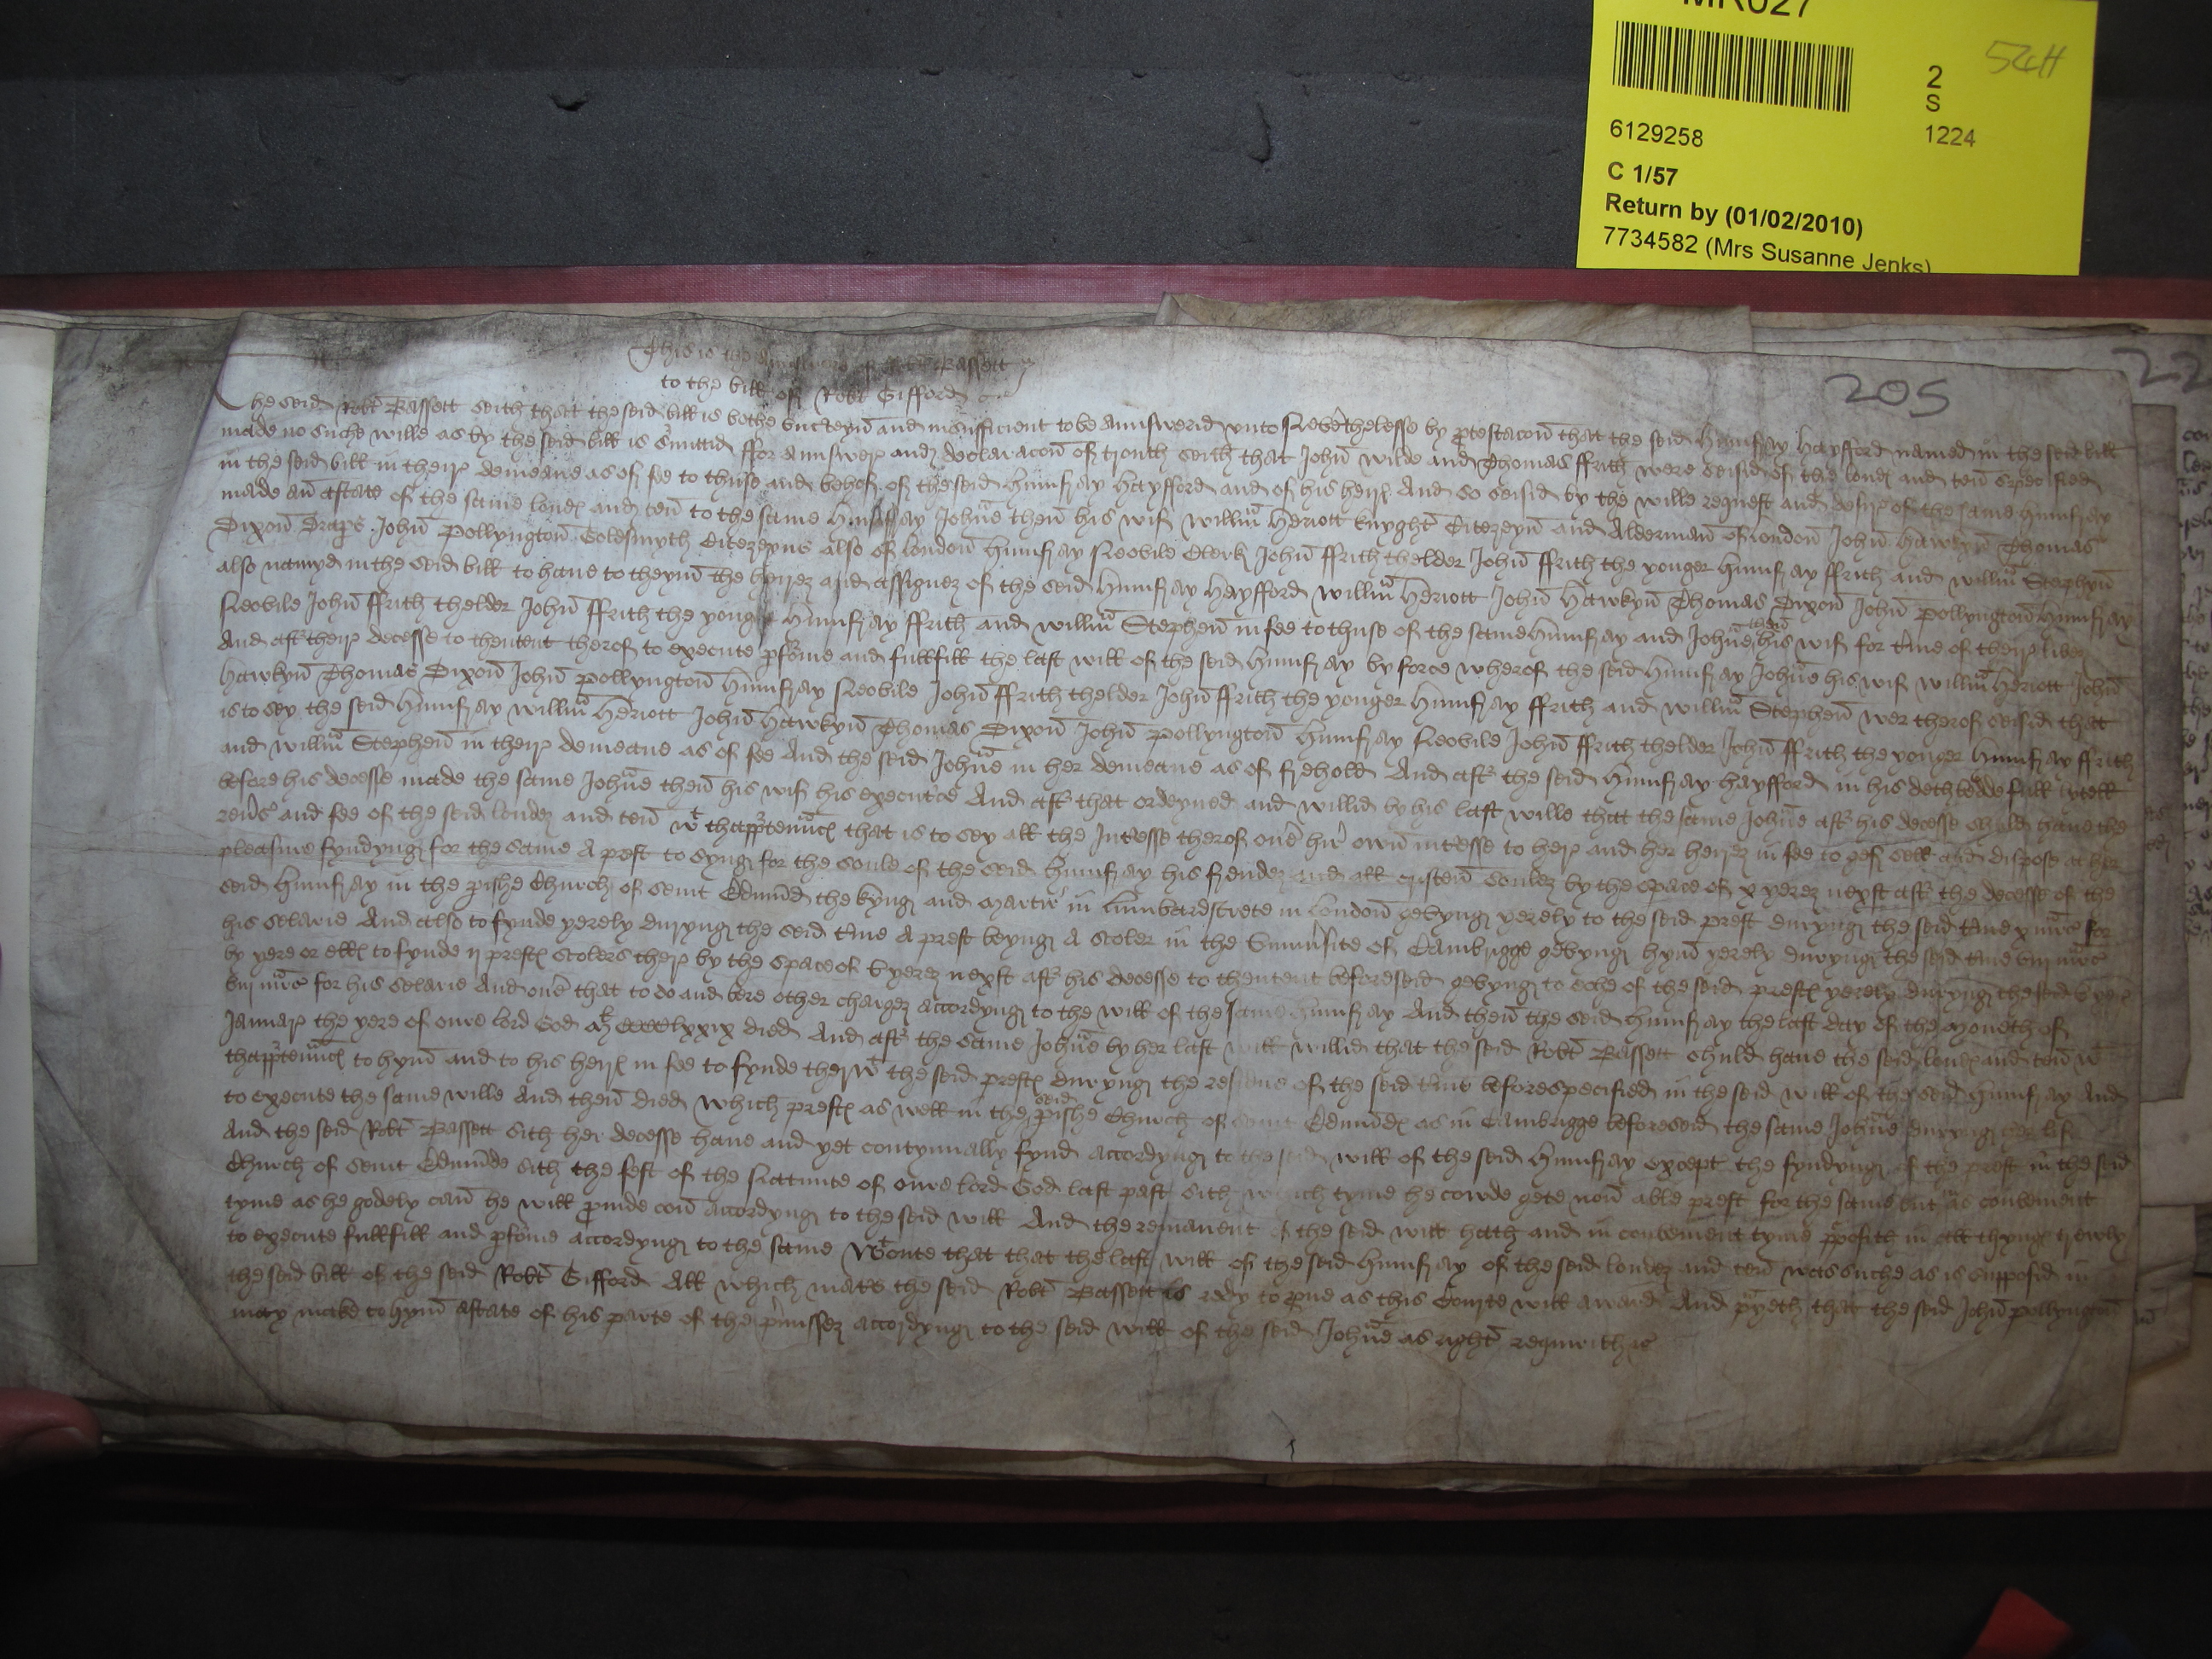 MR027
54H
2
S
6129258
1224
C 1/57
Return by (01/02/2010)
7734582 (Mrs Susanne Jenks)
205
22
This is the Answere of Robt Bassett
to the bill of Robt Gifford
he seid Robt Bassett seith that the seid bill is bothe uncteyn and insufficient to be Aunswerid unto Nevthelesse by protestacon that the seid Humfray Hayfford named in the seid bill
made no suche wille as by the seid bill is surmittid ffor Aunswer and declaracon of trouth seith that John Wilde and Thomas ffrith were seisid of the londes and ten specified
in the seid bill in their demeane as of fee to thuse and behof of the seid Humfray Hayfford and of his heires And so seisid by the wille request and desire of the same Humfray
made an astate of the same londes and ten to the same Humfray Johne then his wif Willm Heriott knyght Citezeyn and Alderman of london John Hawkyn Thomas
Dixon Drap John Pollyngton Goldsmyth Citezeyns also of london Humfray Neovile Clerk John ffrith thelder John ffrith the yonger Humfray ffrith and Willm Stephyn
also namyd in the seid bill to have to theym the heirez and assignez of the seid Humfray Hayfford Willm Heriott John Hawkyn Thomas Dixon John Pollyngton Humfray
Neovile John ffrith thelder John ffrith the yonger Humfray ffrith and Willm Stephen in fee to thuse of the same Humfray and Johne then his wif for tme of their lives
And aft their decesse to thentent therof to execute pforme and fullfill the last will of the seid Humfray by force wherof the seid Humfray Johne his wif Willm Heriott John
Hawkyn Thomas Dixon John Pollyngton Humfray Neovile John ffrith thelder John ffrith the yonger Humfray ffrith and Willm Stephen wer therof seisid that
is to sey the seid Humfray Willm Heriott John Hawkyn Thomas Dixon John Pollyngton Humfray Neovile John ffrith thelder John ffrith the yonger Humfray ffrith
and Willm Stephen in their demeane as of fee And the seid Johne in her demeane as of frehold And aft the seid Humfray Hayfford in his deth bedde full litell
before his decesse made the same Johne then his wif his executrice And aft that ordeyned and willid by his last wille that the same Johne aft his decesse shuld have the
revs and fee of the seid londez and ten wt thapptenncs that is to sey all the Intresse therof ov hir own intresse to her and her heirez in fee to gef sell and dispose at her
pleasure fyndyng for the same A prest to syng for the soule of the seid Humfray his frendez and all cristen soulez by the space of x yerez next aft the decesse of the
seid Humfray in the pishe Church of seint Edmund the kyng and Martir in lumbardstrete in london gevyng yerely to the seid prest duryng the seid tme x mrc for
his selarie And also to fynde yerely duryng the seid tme A prest beyng A scoler in the Univsite of Cambrigge gevyng hym yerely duryng the seid tme viij mrc
by yere or elles to fynde ij prestes scolers ther by the space of v yerez next aft his decesse to thentent beforeseid gevyng to eche of the seid prestes yerely duryng the seid v yers
viij mrc for his selarie And ov that to do and bere other chargez accordyng to the will of the same Humfray And then the seid Humfray the last day of the Moneth of
Januar the yere of oure lord God Ml cccclxxix died And aft the same Johne by her last will willid that the seid Robt Bassett shuld have the seid londes and ten wt
thapptenncs to hym and to his heires in fee to fynde therwt the seid prestes duryng the residue of the seid tme beforespecified in the seid will of the seid Humfray And
to execute the same wille And then died Which prestes as well in the seid pishe Church of seint Edmundes as in Cambrigge beforeseid the same Johne duryng her lif
And the seid Robt Bassett sith her decesse have and yet contynually fynd accordyng to the seid will of the seid Humfray except the fyndyng of the prest in the seid
Church of seint Edmunde sith the fest of the Nativite of oure lord God last past sith which tyme he cowde gete non able prest for the same but as convenient
tyme as he godely can he will pvide con accordyng to the seid will And the remanent of the seid will hath and in convenient tyme pposith in all thynges trewly
to execute fullfill and pforme accordyng to the same Wtoute that that the last will of the seid Humfray of the seid londez and ten was suche as is supposid in
the seid bill of the seid Robt Gifford All which mats the seid Robt Bassett is redy to prve as this Courte will award And pyeth that the seid John Pollyngton
may make to hym astate of his parte of the pmissez accordyng to the seid will of the seid Johne as right requirith